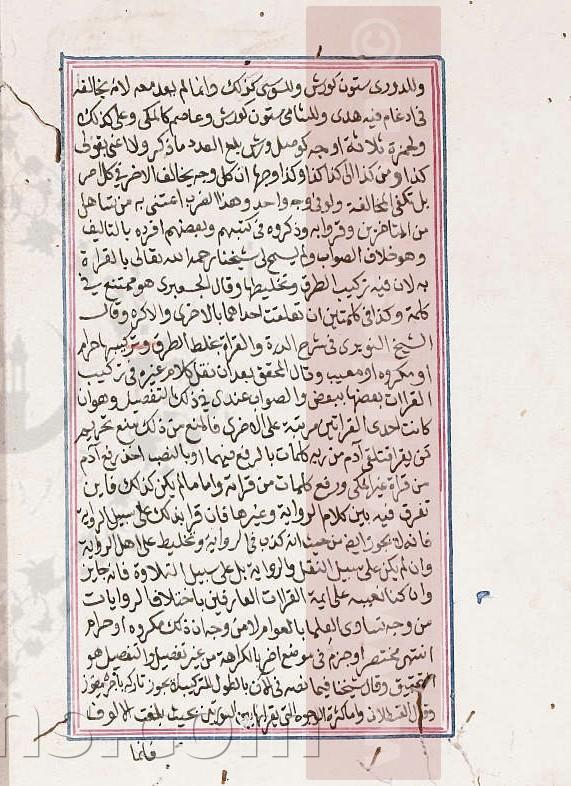 وللدورى ستون كورش وللسوسى كذلك وانما لم يعد معه لانه يخالفه
فى ادغام فيه هدى وللشامى ستون كورش وعاصم كالمكى وعلى كذلك
ولحمزة ثلاثة اوجه كوصل ورش بلغ العدد ما ذكر ولا اعنى بقولى
كذا ومن كذا الى كذا كذا وكذا وجها ان كل وجه يخالف الاخر فى كلامر
بل تكفى المخالفة ولو فى وجه واحد وهذا الضرب اعتنى به من تساهل
من المتاخرين وقروا به وذكروه فى كتبهم وبعضهم افرده بالتاليف
وهو خلاف الصواب ولم يسمح لى شيخنا رحمه الله تعالى بالقراة
به لان فيه تركيب الطرق وتخليطها وقال الجعبرى هو ممتنع فى
كلمة وكذا فى كلمتين ان تعلقت احداهما بالاخرى والا كره وقال
الشيخ النويرى فى شرح الدرة والقراة بخلط الطرق وتركيبها حرام
او مكروه او معيب وقال المحقق بعد ان نقل كلام غيره فى تركيب
القراات بعضها ببعض والصواب عندى فى ذلك التفصيل وهو ان
كانت احدى القراتين مرتبة على الاخرى فالمنع من ذلك منع تحريم
كمن يقرا فتلقى آدم من ربه كلمات بالرفع فيهما او بالنصب اخذ رفع آدم
من قراة غير المكى ورفع كلمات من قراته واما ما لم يكن كذلك فاين
نفرق فيه بين كلام الرواية وغيرها فان قرا بذلك على سبيل الرواية
فانه لا يجوز ايضا من حيث انه كذب فى الرواية وتخليط على اهل الرواية
وان لم يكن على سبيل النقل والرواية بل على سبيل التلاوة فانه جايز
وان كنا نعيبه على ايمة القراات العارفين باختلاف الروايات
من وجه تساوى العلما بالعوام لا من وجه ان ذلك مكروه او حرام
انتهى مختصرا وجزم فى موضع اخر بالكراهة من غير تفصيل والتفصيل هو
التحقيق وقال شيخنا فيما
وقال القسطلانى واما كثرة الوجوه التى يقرا بها بين السورتين بحيث بلغت الالوف
فانما